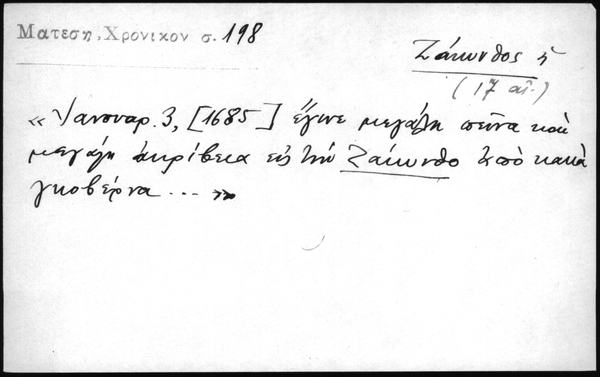 Ματεση, Χρονικον σ. 198
Ζάκυνθος ἡ
(17 αἰ.)
« Ἰανουαρ. 3, [1685] ἔγινε μεγάλη πεῖνα καὶ
μεγάλη ἀκρίβεια εἰς τὴν Ζάκυνθο ἀπὸ κακὰ
γκοβέρνα ... »